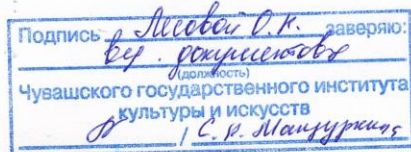 Подпись Лисовой О.К. заверяю:
вед. документовед
(должность)
Чувашского государственного института
культуры и искусств
/ С.